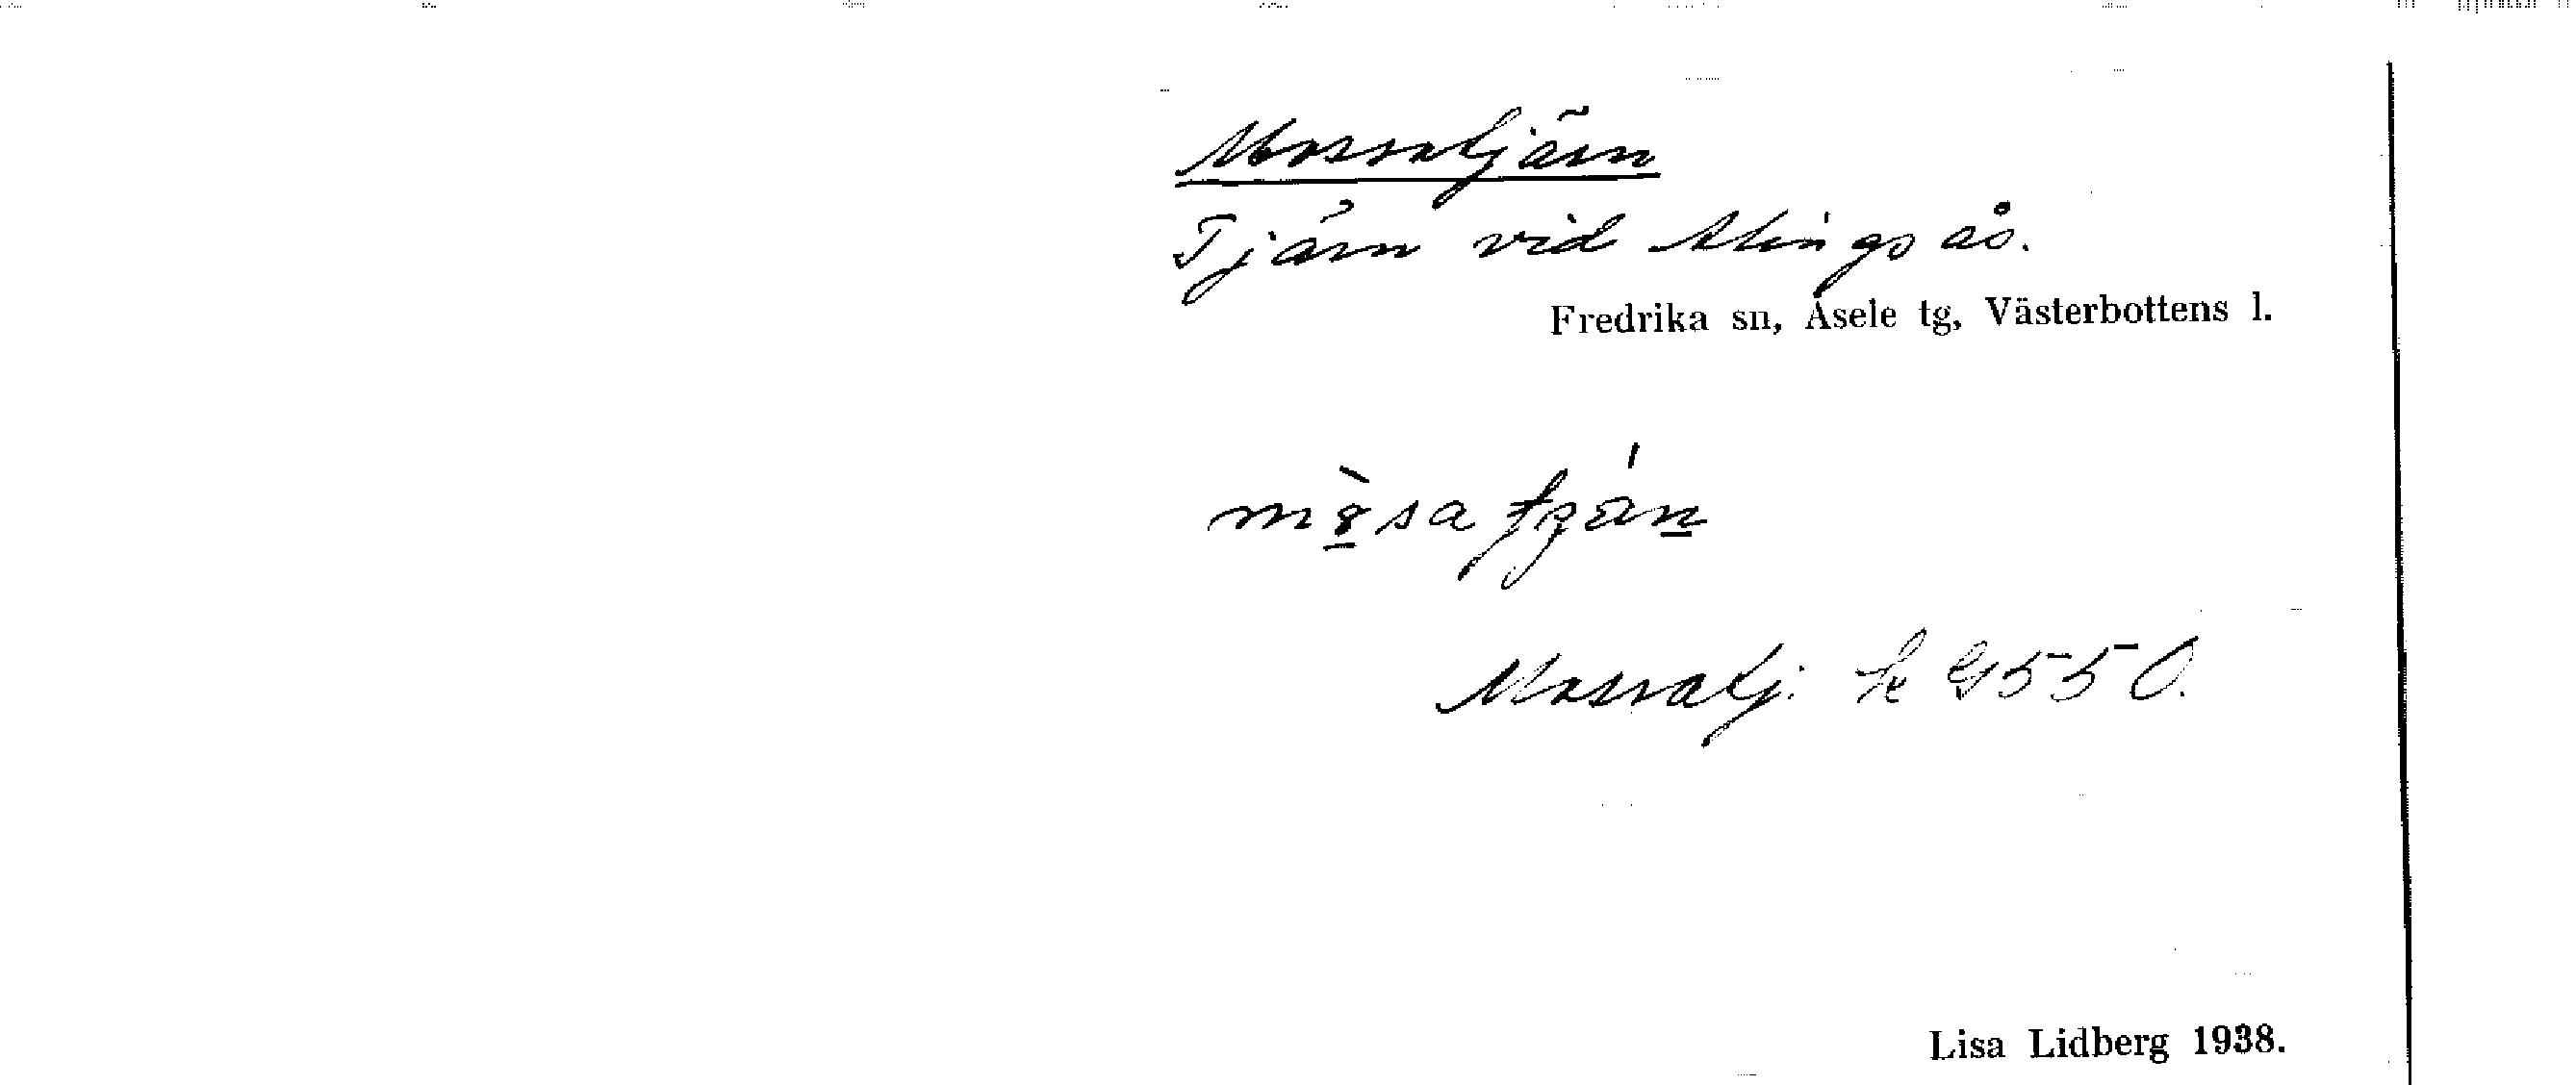 Mossatjärn
Tjärn vid Alingsås.
Fredrika sn, Åsele tg, Västerbottens l.
Mossatj: k 9550.
Lisa Lidberg 1938.